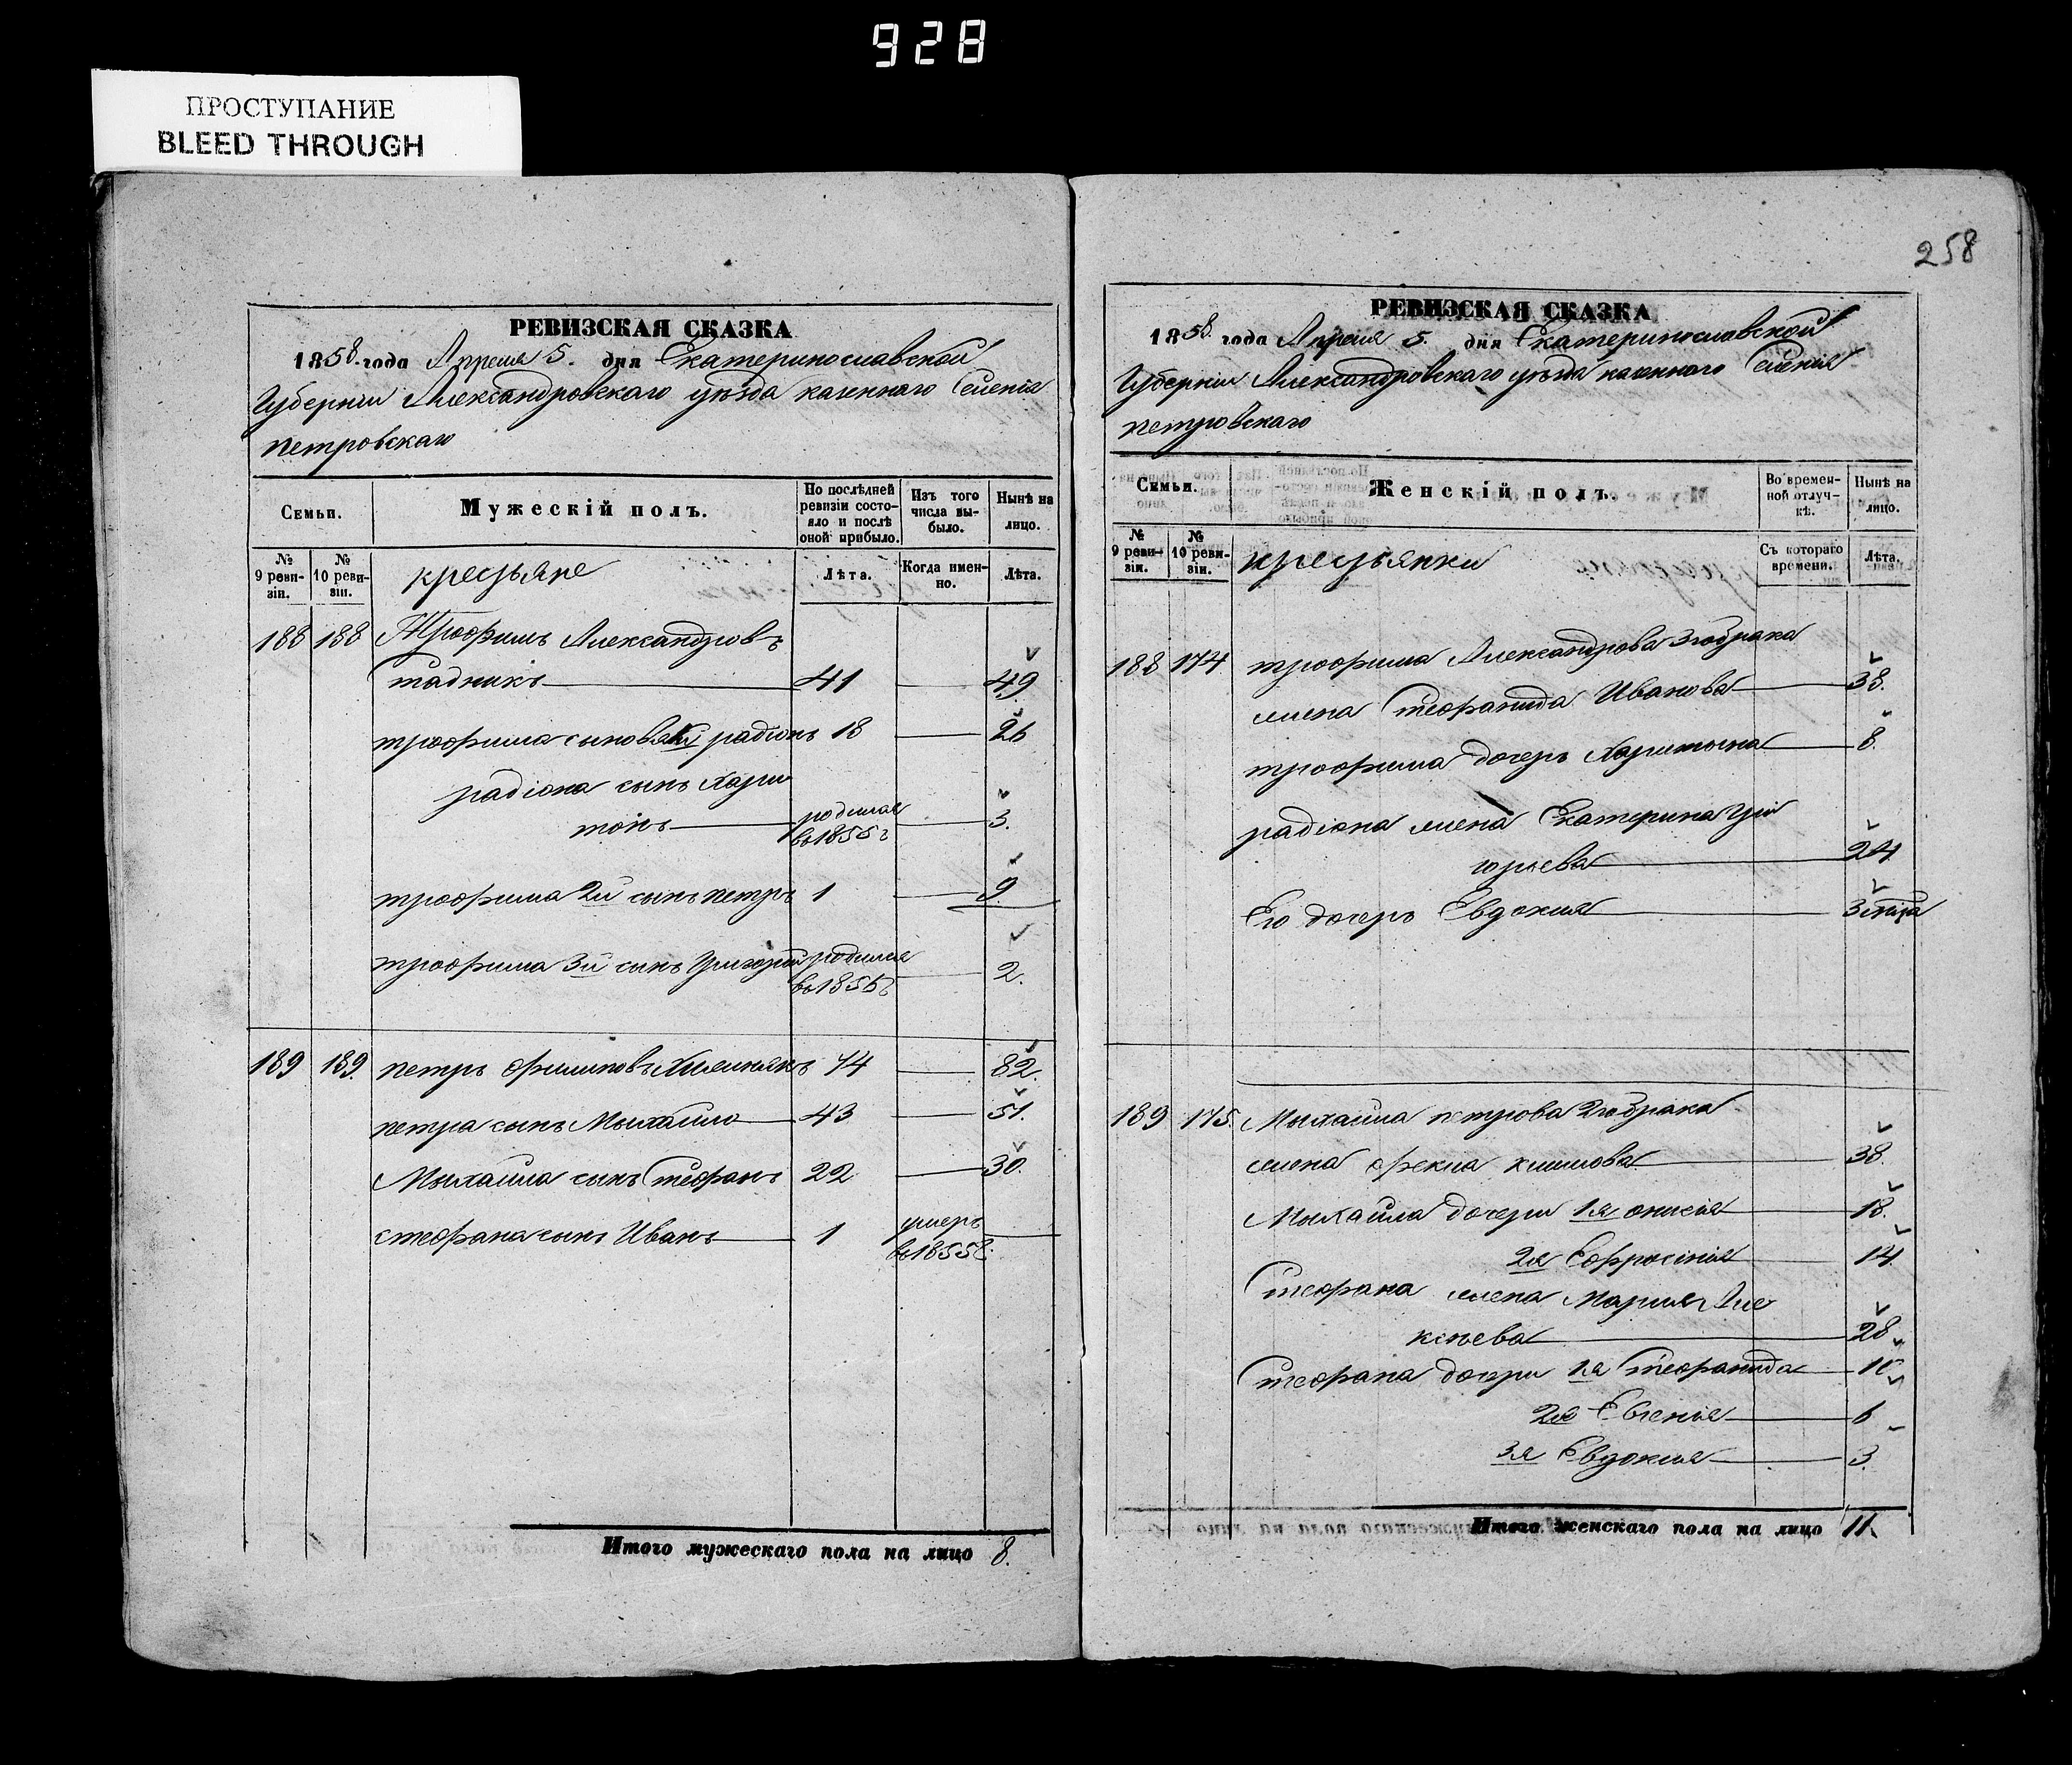 928
ПРОСТУПАНИЕ
BLEED THROUGH
258
РЕВИЗСКАЯ СКАЗКА
1858. года Апреля 5. дня Екатеринославской
Губернии Александровскаго уѣзда казеннаго Селенія
петровскаго
Семьи.
Мужескій полъ.
По послѣдней ревизіи состояло и послѣ оной прибыло.
Изъ того числа выбыло.
Нынѣ на лицо.
№ 9 ревизіи.
№ 10 ревизіи.
крестьяне
Лѣта.
Когда именно.
Лѣта.
188 188 Трофимъ Александровъ
41 49
трофима сыновья 1й радіонъ 18 26
радіона сынъ Хари
тонъ родился во 1855 г 3.
трофима 2й сынъ петръ 1 9.
трофима 3й сынъ Григорій родился во 1856 г 2.
189 189. петръ филиповъ Хижнякъ 74 82.
петра сынъ Михайло 43 51.
Михайла сынъ Стефанъ 22 30.
стефана сынъ Иванъ 1 умеръ во 1855 г.
Итого мужескаго пола на лицо 8.
РЕВИЗСКАЯ СКАЗКА
1858. года Апреля 5. дня Екатеринославской
Губерніи Александровскаго уѣзда казеннаго Селенія
петровскаго
Семьи.
Женскій полъ.
Во временной отлучкѣ.
Нынѣ на лицо.
№ 9 ревизіи.
№ 10 ревизіи.
крестьянки
Съ котораго времени.
Лѣта.
188 174 трофима Александрова 3го брака
жена Стефанида Иванова 38.
трофима дочерь Харитына 8.
радіона жена Екатерина Гри
горьева 24
Его дочерь Евдокия 3
189 175. Михайла петрова 2го брака
жена фекла климова 38.
Михайла дочери 1я онисія 18.
2я Ефросінія 14.
Стефана жена Мария Але
ксѣева 28
Стефана дочери 1я Стефанида 10
2я Евгенія 6
3я Евдокия 3.
Итого женскаго пола на лицо 11.